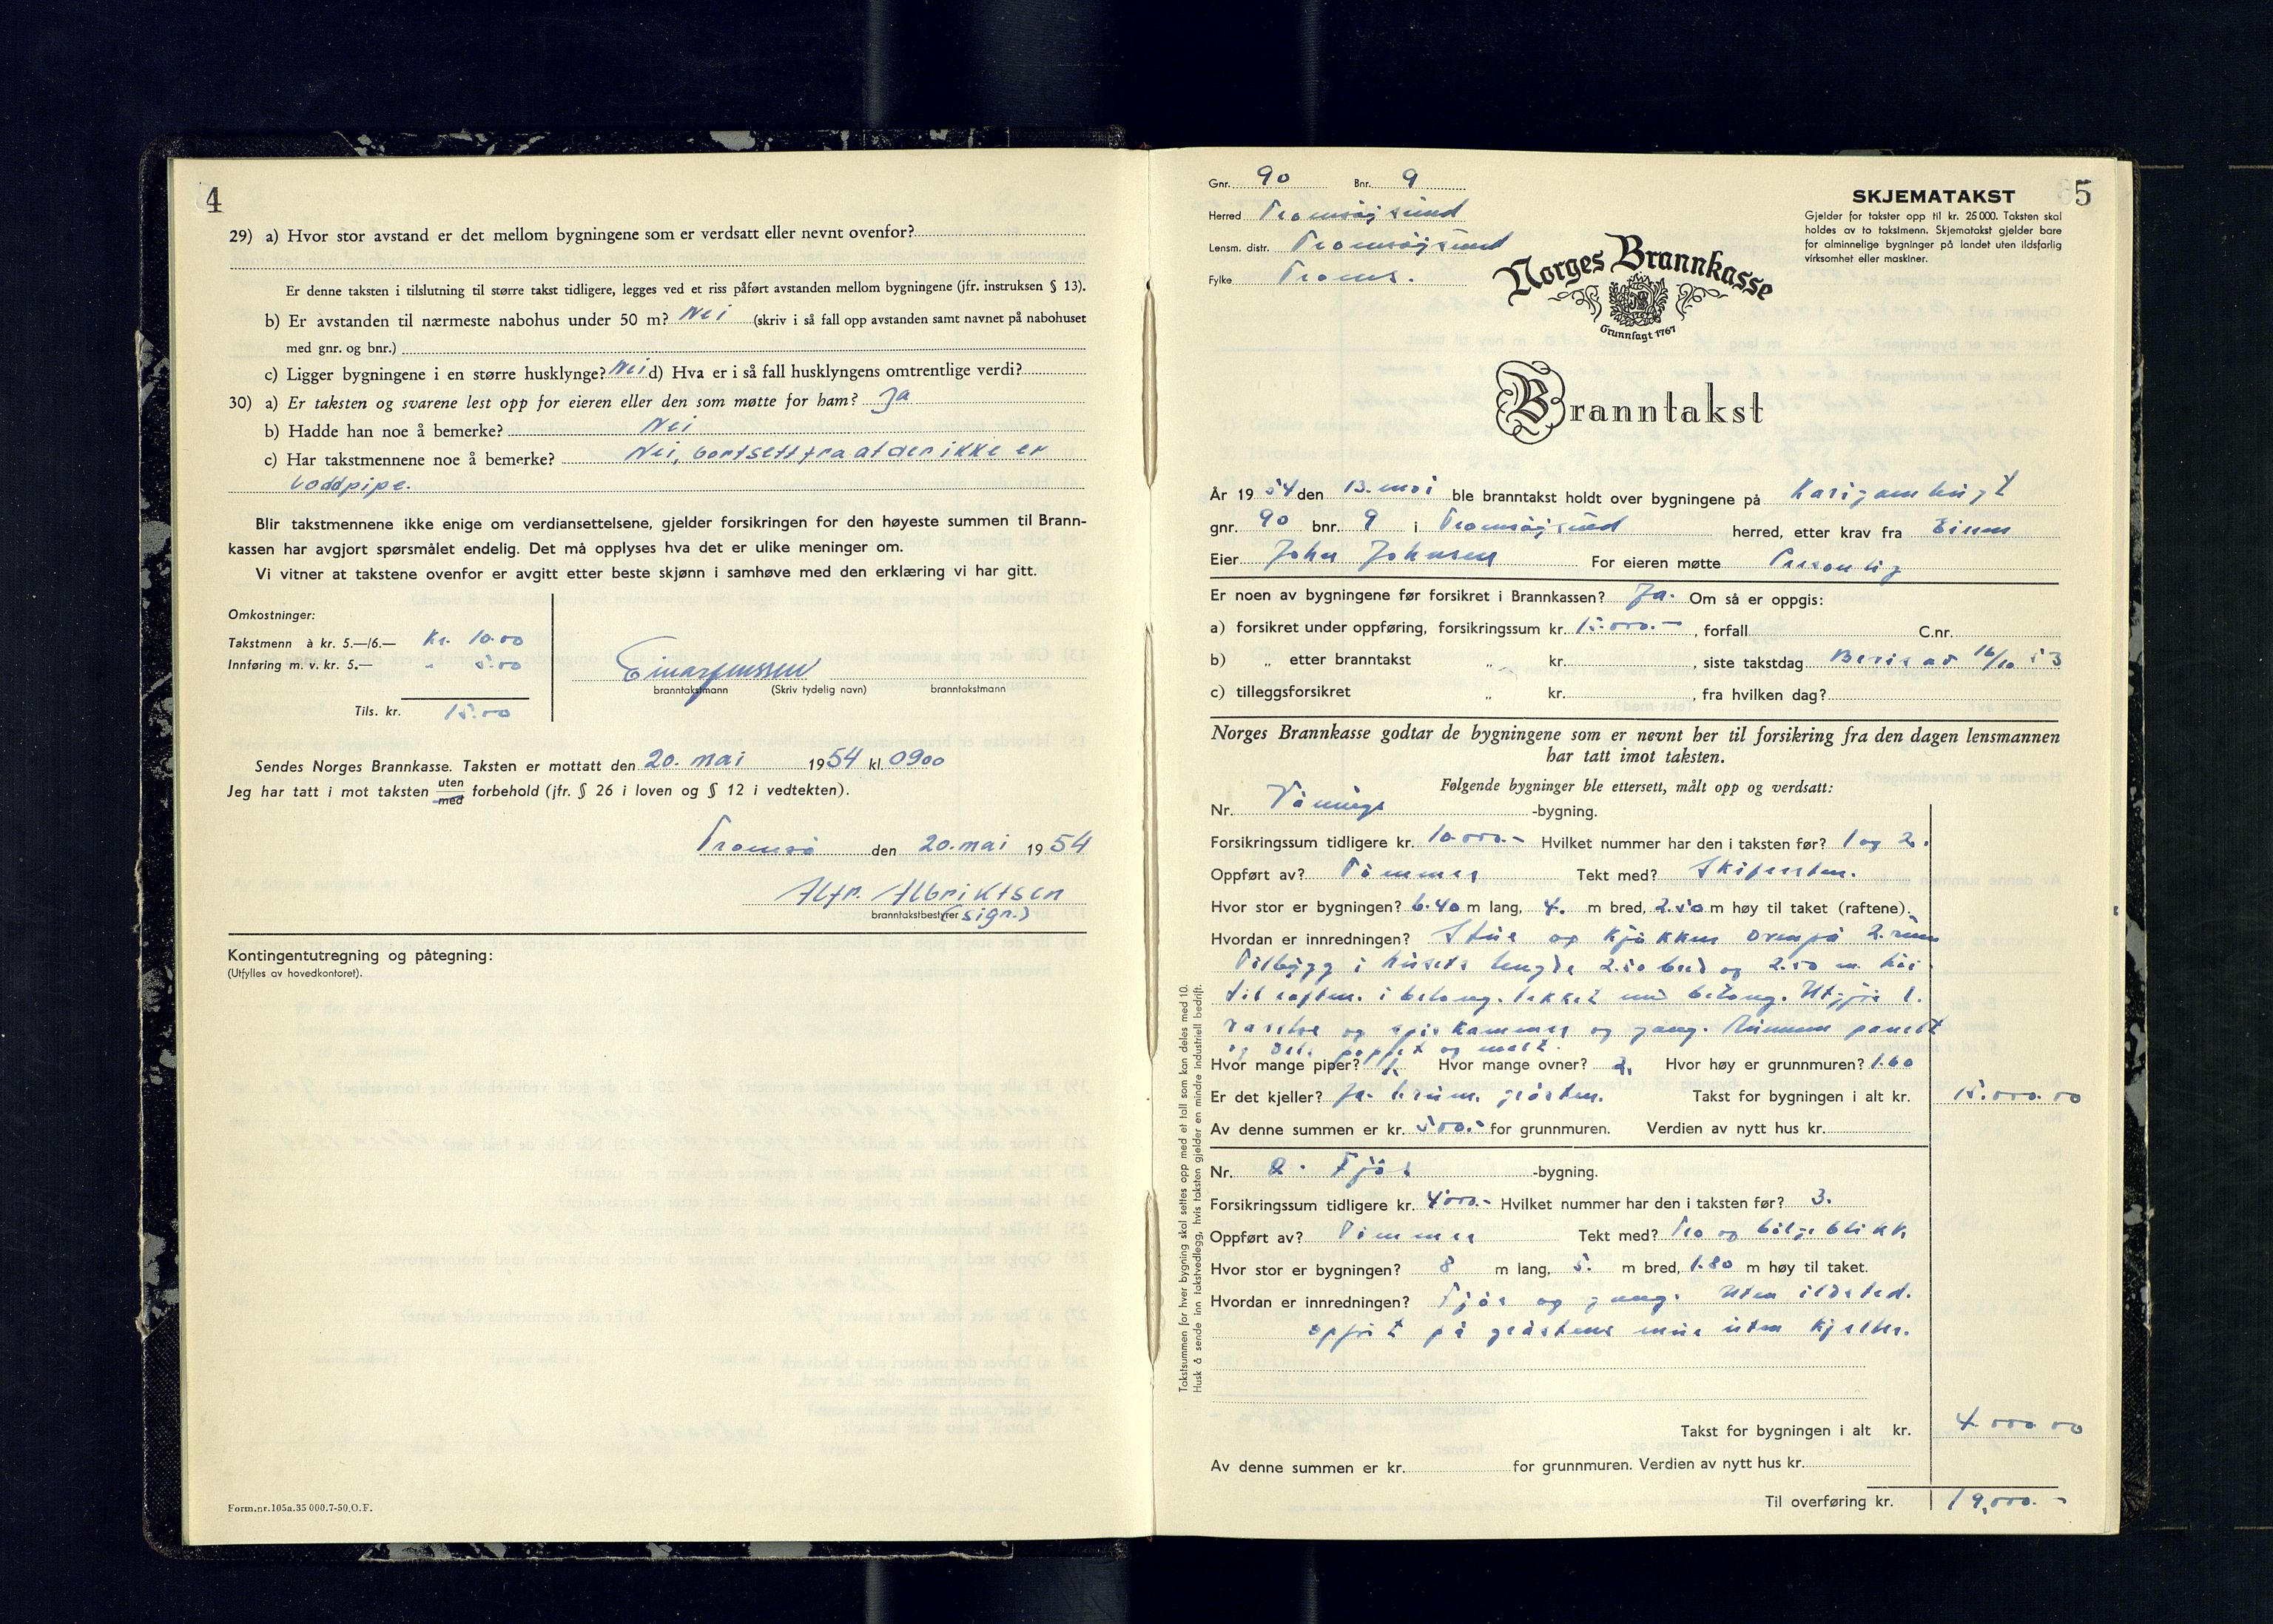 4
29) a) Hvor stor avstand er det mellom bygningene som er verdsatt eller nevnt ovenfor?
Er denne taksten i tilslutning til større takst tidligere, legges ved et riss påført avstanden mellom bygningene (jfr. instruksen § 13).
b) Er avstanden til nærmeste nabohus under 50 m? Nei (skriv i så fall opp avstanden samt navnet på nabohuset
med gnr. og bnr.)
c) Ligger bygningene i en større husklynge? Nei d) Hva er i så fall husklyngens omtrentlige verdi?
30) a) Er taksten og svarene lest opp for eieren eller den som møtte for ham? Ja
b) Hadde han noe å bemerke? Nei
c) Har takstmennene noe å bemerke? Nei, bortsett fra at der ikke er
loddpipe.
Blir takstmennene ikke enige om verdiansettelsene, gjelder forsikringen for den høyeste summen til Brann-
kassen har avgjort spørsmålet endelig. Det må opplyses hva det er ulike meninger om.
Vi vitner at takstene ovenfor er avgitt etter beste skjønn i samhøve med den erklæring vi har gitt.
Omkostninger:
Takstmenn à kr. 5.—/6.— Kr. 10.00
Innføring m. v. kr. 5.— " 5.00
Tils. kr. 15.00
Einar Jenssen
branntakstmann (Skriv tydelig navn) branntakstmann
Sendes Norges Brannkasse. Taksten er mottatt den 20. mai 1954 kl. 0900
Jeg har tatt i mot taksten uten med forbehold (jfr. § 26 i loven og § 12 i vedtekten).
Tromsø den 20. mai 1954
Alfr. Albriktsen
branntakstbestyrer (sign.)
Kontingentutregning og påtegning:
(Utfylles av hovedkontoret).
Form.nr.105a.35 000.7-50.O.F.
5
Gnr. 90 Bnr. 9
Herred Tromsøysund
Lensm. distr. Tromsøysund
Fylke Troms.
SKJEMATAKST
Gjelder for takster opp til kr. 25 000. Taksten skal
holdes av to takstmenn. Skjematakst gjelder bare
for alminnelige bygninger på landet uten ildsfarlig
virksomhet eller maskiner.
Norges Brannkasse
Grunnlagt 1767
Branntakst
År 1954 den 13. mai ble branntakst holdt over bygningene på
gnr. 90 bnr. 9 i Tromsøysund herred, etter krav fra Eieren
Eier John Johnsen For eieren møtte Personlig
Er noen av bygningene før forsikret i Brannkassen? Ja. Om så er oppgis:
a) forsikret under oppføring, forsikringssum kr. 15.000.- , forfall C.nr.
b) „ etter branntakst „ kr. , siste takstdag 16/10 53
c) tilleggsforsikret „ kr. , fra hvilken dag?
Norges Brannkasse godtar de bygningene som er nevnt her til forsikring fra den dagen lensmannen
har tatt imot taksten.
Følgende bygninger ble ettersett, målt opp og verdsatt:
Nr. Vånings -bygning.
Forsikringssum tidligere kr. 10.000.- Hvilket nummer har den i taksten før? 1 og 2.
Oppført av? Tømmer Tekt med? Skifersten.
Hvor stor er bygningen? 6.40 m lang, 4. m bred, 2.50 m høy til taket (raftene).
Hvordan er innredningen? Stue og kjøkken ovenpå 2. rum
Tilbygg i husets lengde 2.50 bred og 2.50 m. høi
til raften. i betong. tekket med betong. Utgjør 1.
vaske og spiskammer og gang. Rummen panelt
og dels pappet og malt.
Hvor mange piper? 1. Hvor mange ovner? 2. Hvor høy er grunnmuren? 1.60
Er det kjeller? Ja. 1. rum. gråsten. Takst for bygningen i alt kr. 15.000.00
Av denne summen er kr. 500.- for grunnmuren. Verdien av nytt hus kr.
Nr. 2. Fjøs -bygning.
Forsikringssum tidligere kr. 4000.- Hvilket nummer har den i taksten før? 3.
Oppført av? Tømmer Tekt med? Tro og bølgeblikk
Hvor stor er bygningen? 8 m lang, 5. m bred, 1.80 m høy til taket.
Hvordan er innredningen? Fjøs og gang. Uten ildsted.
opført på gråstens mur uten kjeller.
Takst for bygningen i alt kr. 4.000.00
Av denne summen er kr. for grunnmuren. Verdien av nytt hus kr.
Til overføring kr. 19,000.-
Takstsummen for hver bygning skal settes opp med et tall som kan deles med 10.
Husk å sende inn takstvedlegg, hvis taksten gjelder en mindre industriell bedrift.